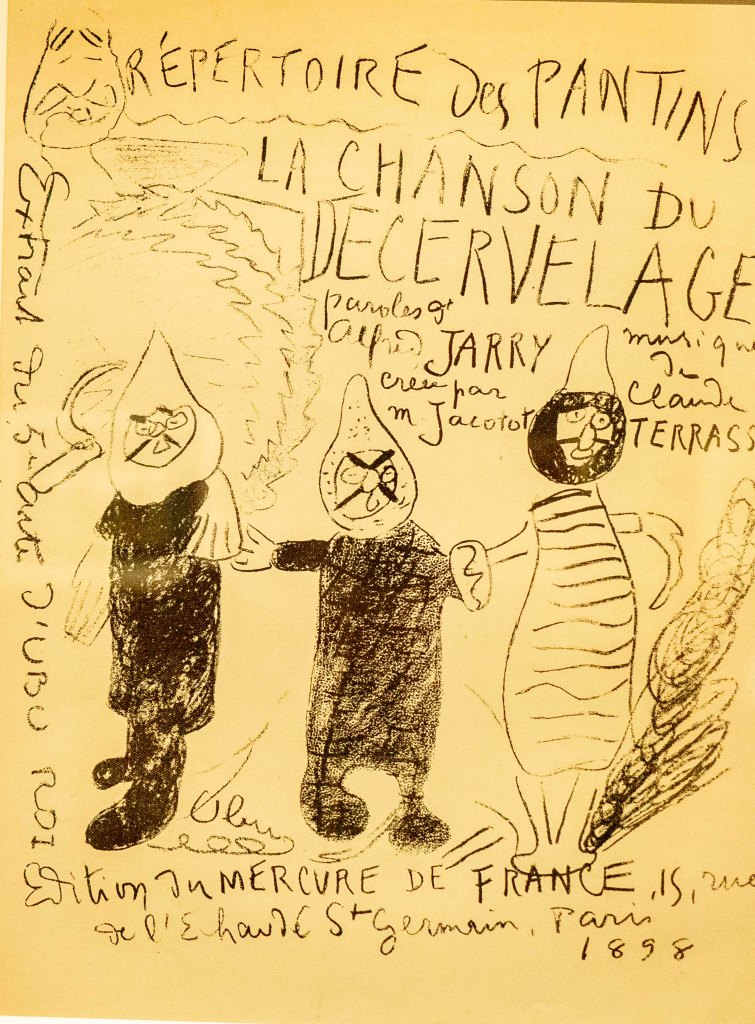 RÉPERTOIRE des PANTINS
LA CHANSON DU
DECERVELAGE
paroles d'
Alfred JARRY
créée par
M. Jacotot
musique
de
Claude
TERRASS
Extrait du 5e acte d'UBU ROI
Edition du MERCURE DE FRANCE, 15, rue
de l'Echaudé St Germain, Paris
1898